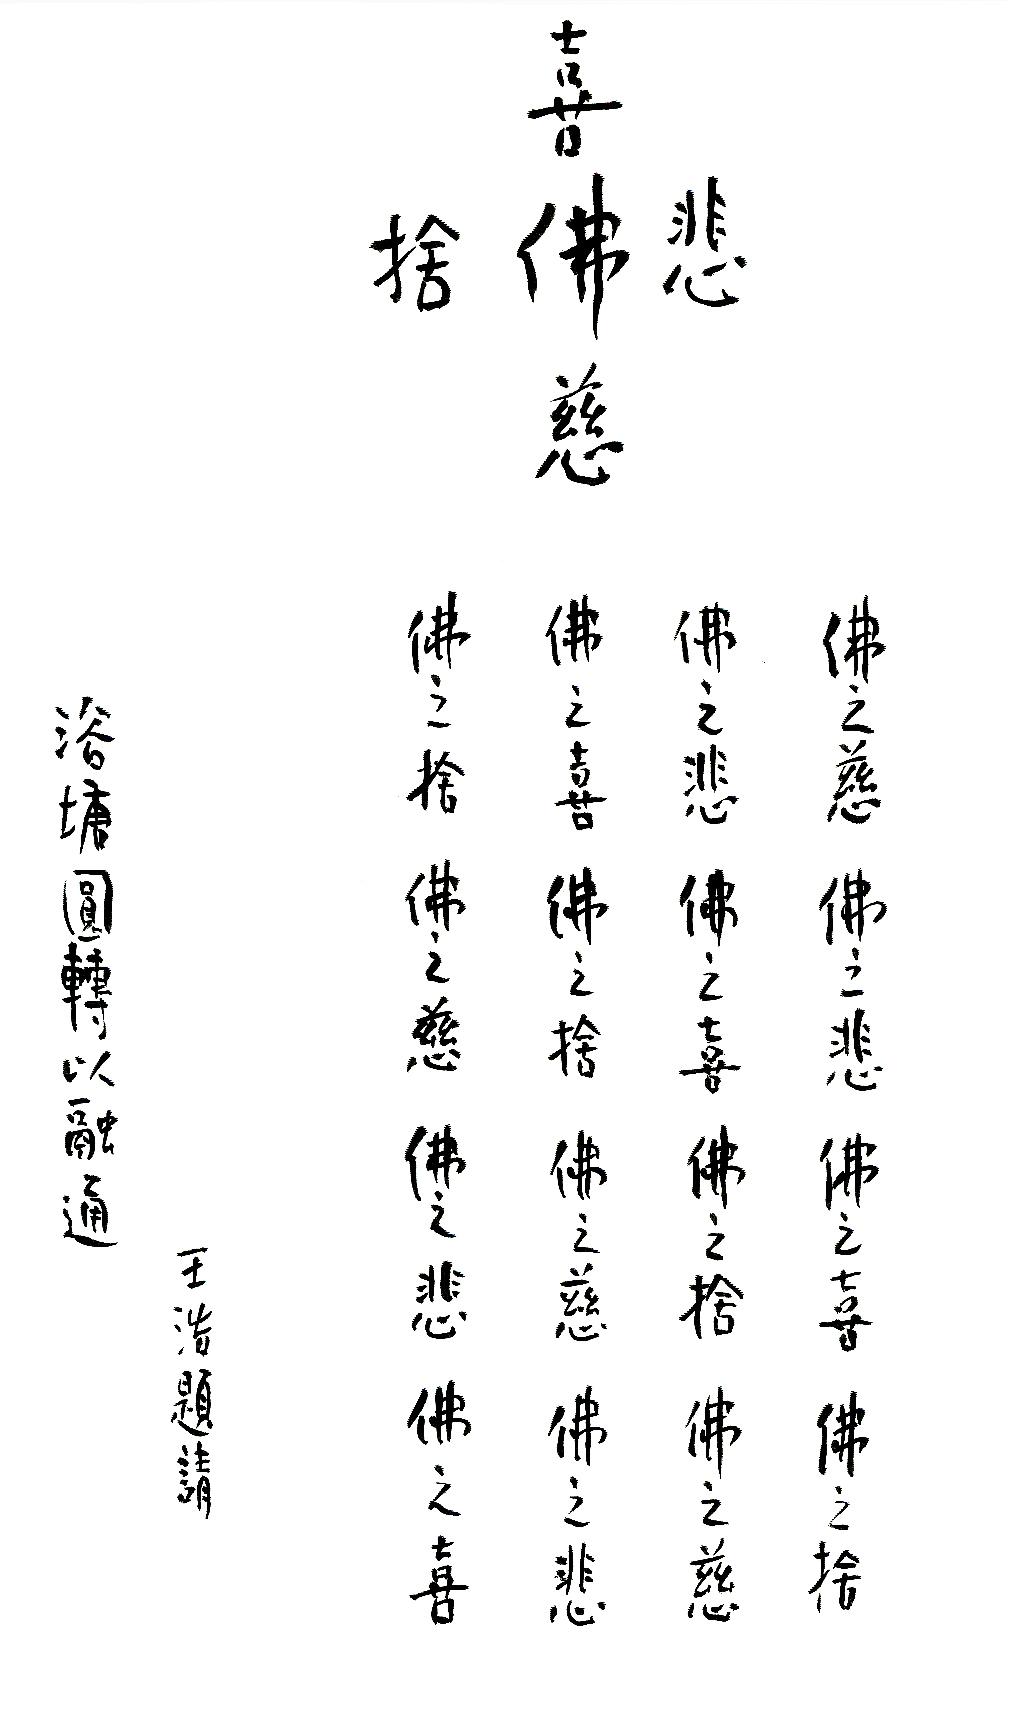 喜
悲
佛
捨
慈
佛之慈 佛之悲 佛之喜 佛之捨
佛之悲 佛之喜 佛之捨 佛之慈
佛之喜 佛之捨 佛之慈 佛之悲
佛之捨 佛之慈 佛之悲 佛之喜
王浩題請
浴塘圓轉以融通